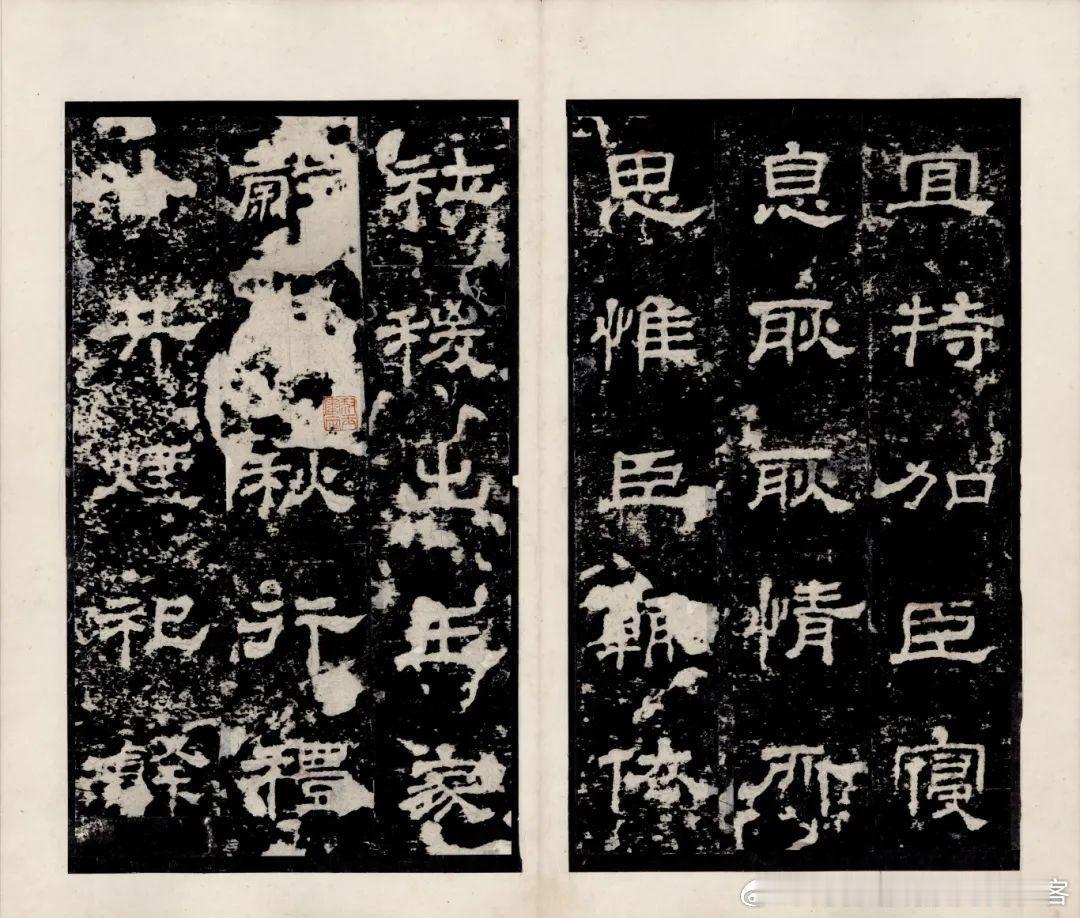 宜特加臣寑
息耿耿情所
思惟臣輒依
社稷出王家
穀秋行禮
以共煙祀餘
客